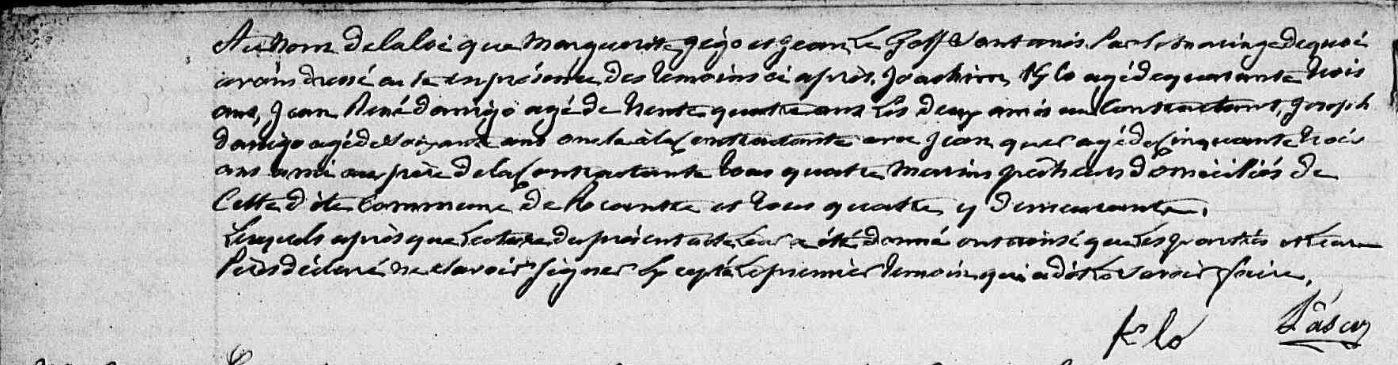 Au nom de la loi que Marguerite gego et jean Le Goff sont unis par le mariage de quoi
avons dressé acte en présence des temoins ci après, joachim Klo agé de quarante trois
ans, jean René danigo agé de trente quatre ans les deux amis au Contractant, joseph
danigo agé de soixante ans oncle à la Contractante avec jean quer agé de Cinquante trois
ans ami au père de la Contractante tous quatre marins pêcheurs domiciliés de
Cette dite Commune de et tous quatre y demeurante.
Lesquels après que Lecture du présent acte Leur a été donné ont ainsi que Les parties et Leur
Pères déclaré ne Savoir Signer Excepté Le premier temoin qui a dit Le Savoir faire.
Klo